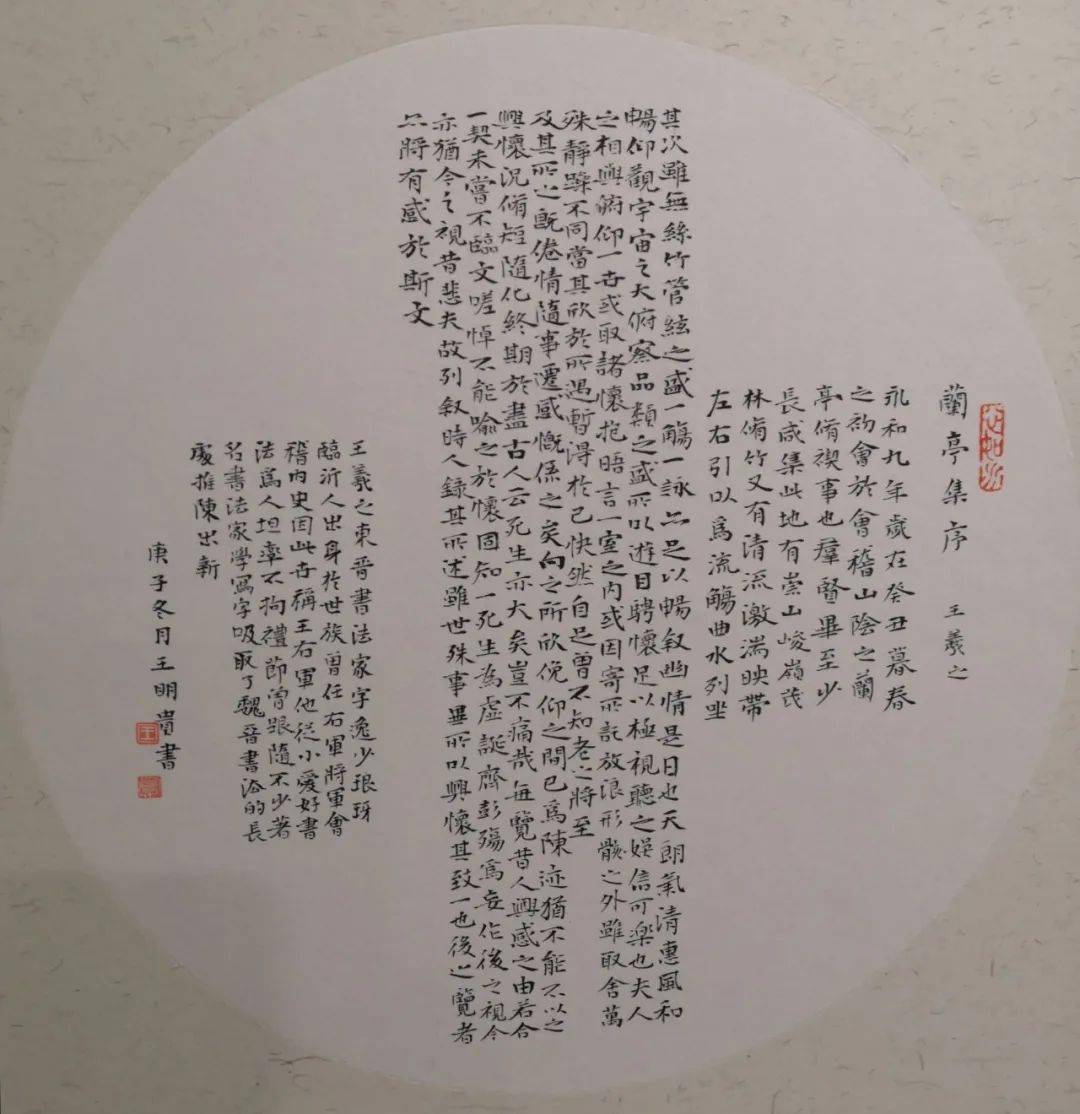 蘭亭集序 王羲之
永和九年歲在癸丑暮春
之初會於會稽山陰之蘭
亭脩禊事也羣賢畢至少
長咸集此地有崇山峻嶺茂
林脩竹又有清流激湍映帶
左右引以為流觴曲水列坐
其次雖無絲竹管絃之盛一觴一詠亦足以暢叙幽情是日也天朗氣清惠風和
暢仰觀宇宙之大俯察品類之盛所以遊目騁懷足以極視聽之娱信可樂也夫人
之相與俯仰一世或取諸懷抱晤言一室之内或因寄所託放浪形骸之外雖取舍萬
殊靜躁不同當其欣於所遇暫得於己快然自足曾不知老之將至
及其所之既倦情隨事遷感慨係之矣向之所欣俛仰之間已為陳迹猶不能不以之
興懷況脩短隨化終期於盡古人云死生亦大矣豈不痛哉每覽昔人興感之由若合
一契未嘗不臨文嗟悼不能喻之於懷固知一死生為虛誕齊彭殤為妄作後之視今
亦猶今之視昔悲夫故列叙時人錄其所述雖世殊事異所以興懷其致一也後之覽者
亦將有感於斯文
王羲之東晋書法家字逸少琅玡
臨沂人出身於世族曾任右軍將軍會
稽内史因此世稱王右軍他從小愛好書
法為人坦率不拘禮節曾跟隨不少著
名書法家學寫字吸取了魏晉書法的長
處推陳出新
庚子冬月王明貴書